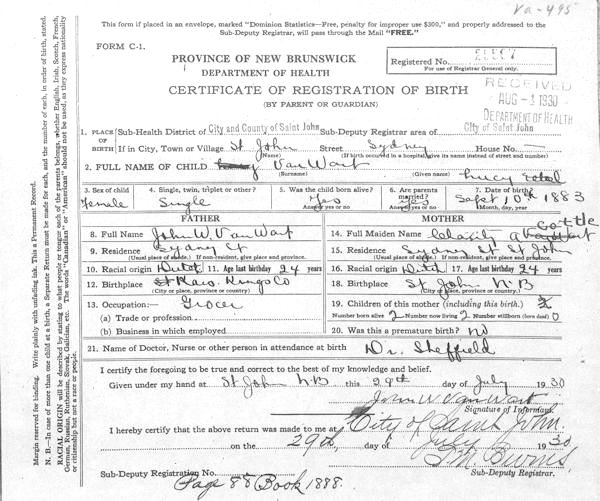 va-495
This form if placed in an envelope, marked "Dominion Statistics—Free, penalty for improper use $300," and properly addressed to the
Sub-Deputy Registrar, will pass through the Mail "FREE."
FORM C-1.
PROVINCE OF NEW BRUNSWICK
DEPARTMENT OF HEALTH
Registered No.
For use of Registrar General only.
CERTIFICATE OF REGISTRATION OF BIRTH
(BY PARENT OR GUARDIAN)
RECEIVED
AUG - 1930
DEPARTMENT OF HEALTH
1. PLACE OF BIRTH
Sub-Health District of City and County of Saint John Sub-Deputy Registrar area of City of Saint John
If in City, Town or Village St John Street Sydney House No. —
(Name) (If birth occurred in a hospital give its name instead of street and number)
2. FULL NAME OF CHILD Van Wart Lucy
(Surname) (Given name)
3. Sex of child Female
4. Single, twin, triplet or other? Single
5. Was the child born alive? Yes
Answer yes or no
6. Are parents married? yes
Answer yes or no
7. Date of birth Sept 10th 1883
Month, day, year
FATHER
8. Full Name John W. Van Wart
9. Residence Sydney St
(Usual place of abode. If non-resident, give place and province)
10. Racial origin Dutch 11. Age last birthday 24 years
12. Birthplace Kings Co
(City or place, province or country)
13. Occupation:— Grocer
(a) Trade or profession
(b) Business in which employed
MOTHER
14. Full Maiden Name A Cottle
15. Residence Sydney St St John
(Usual place of abode. If non-resident, give place and province)
16. Racial origin Dutch 17. Age last birthday 24 years
18. Birthplace St John N.B
(City or place, province or country)
19. Children of this mother (including this birth).
Number born alive 2 Number now living 2 Number stillborn (born dead) 0
20. Was this a premature birth? No
21. Name of Doctor, Nurse or other person in attendance at birth Dr. Sheffield
I certify the foregoing to be true and correct to the best of my knowledge and belief.
Given under my hand at St John N B this 29th day of July 1930
John W Van Wart
Signature of Informant.
I hereby certify that the above return was made to me at City of Saint John.
on the 29th day of July 1930
Burns
Sub-Deputy Registrar.
Sub-Deputy Registration No.
Page 88 Book 1888.
Margin reserved for binding. Write plainly with unfading ink. This a Permanent Record.
N. B.—In case of more than one child at a birth, a Separate Return must be made for each, and the number of each, in order of birth, stated.
RACIAL ORIGIN will be described by stating to what people or race each of the parents belongs, whether English, Irish, Scotch, French,
German, Russian, Ruthenian, Slovak, Galician, etc. The words "Canadian" or "American" should not be used, as they express nationality
or citizenship but not a race or people.